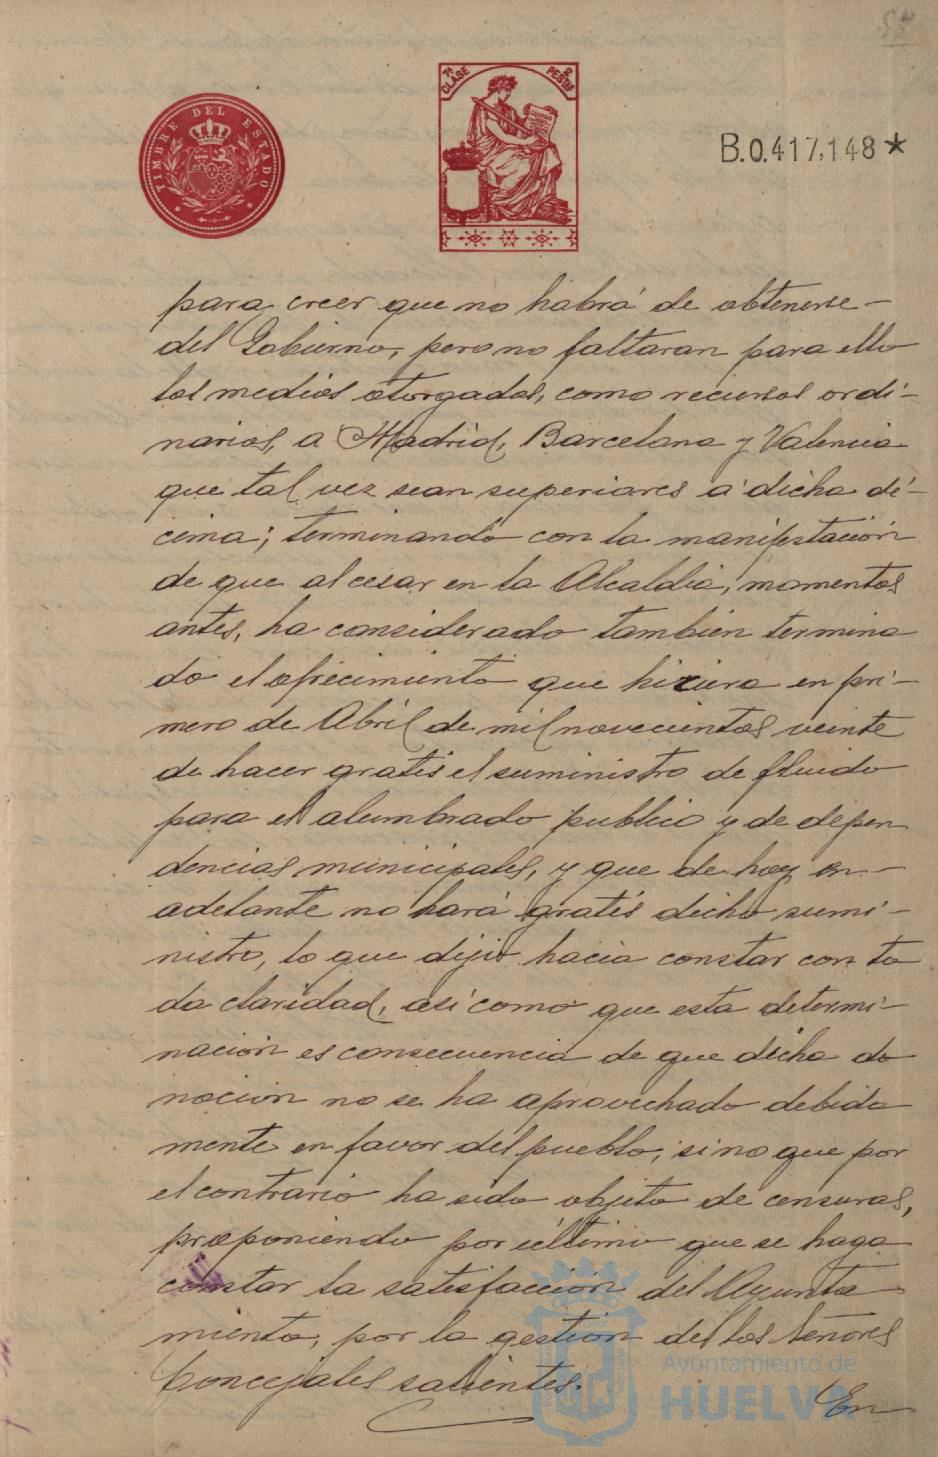 TIMBRE DEL ESTADO
7ª CLASE
2 PESTAS
B.0.417,148*
para creer que no habrá de obtenerse-
del Gobierno, pero no faltaran para ello
los medios otorgados, como recursos ordi-
narios, a Madrid, Barcelona y Valencia
que tal vez sean superiores a dicha dé-
cima; terminando con la manifestación
de que al cesar en la Alcaldia, momentos
antes, ha considerado tambien termina
do el ofrecimiento que hiciera en pri-
mero de Abril de mil novecientos veinte
de hacer gratis el suministro de fluido
para el alumbrado publico y de depen
dencias municipales, y que de hoy en-
adelante no hará gratis dicho sumi-
nistro, lo que dijo hacia constar con to
da claridad, asi como que esta determi-
nación es consecuencia de que dicha do
nacion no se ha aprovechado debida
mente en favor del pueblo, sino que por
el contrario ha sido objeto de censuras,
proponiendo por último que se haga
constar la satisfacción del Ayunta
miento, por la gestión de los Señores
Concejales salientes.
En
Ayuntamiento de
HUELVA